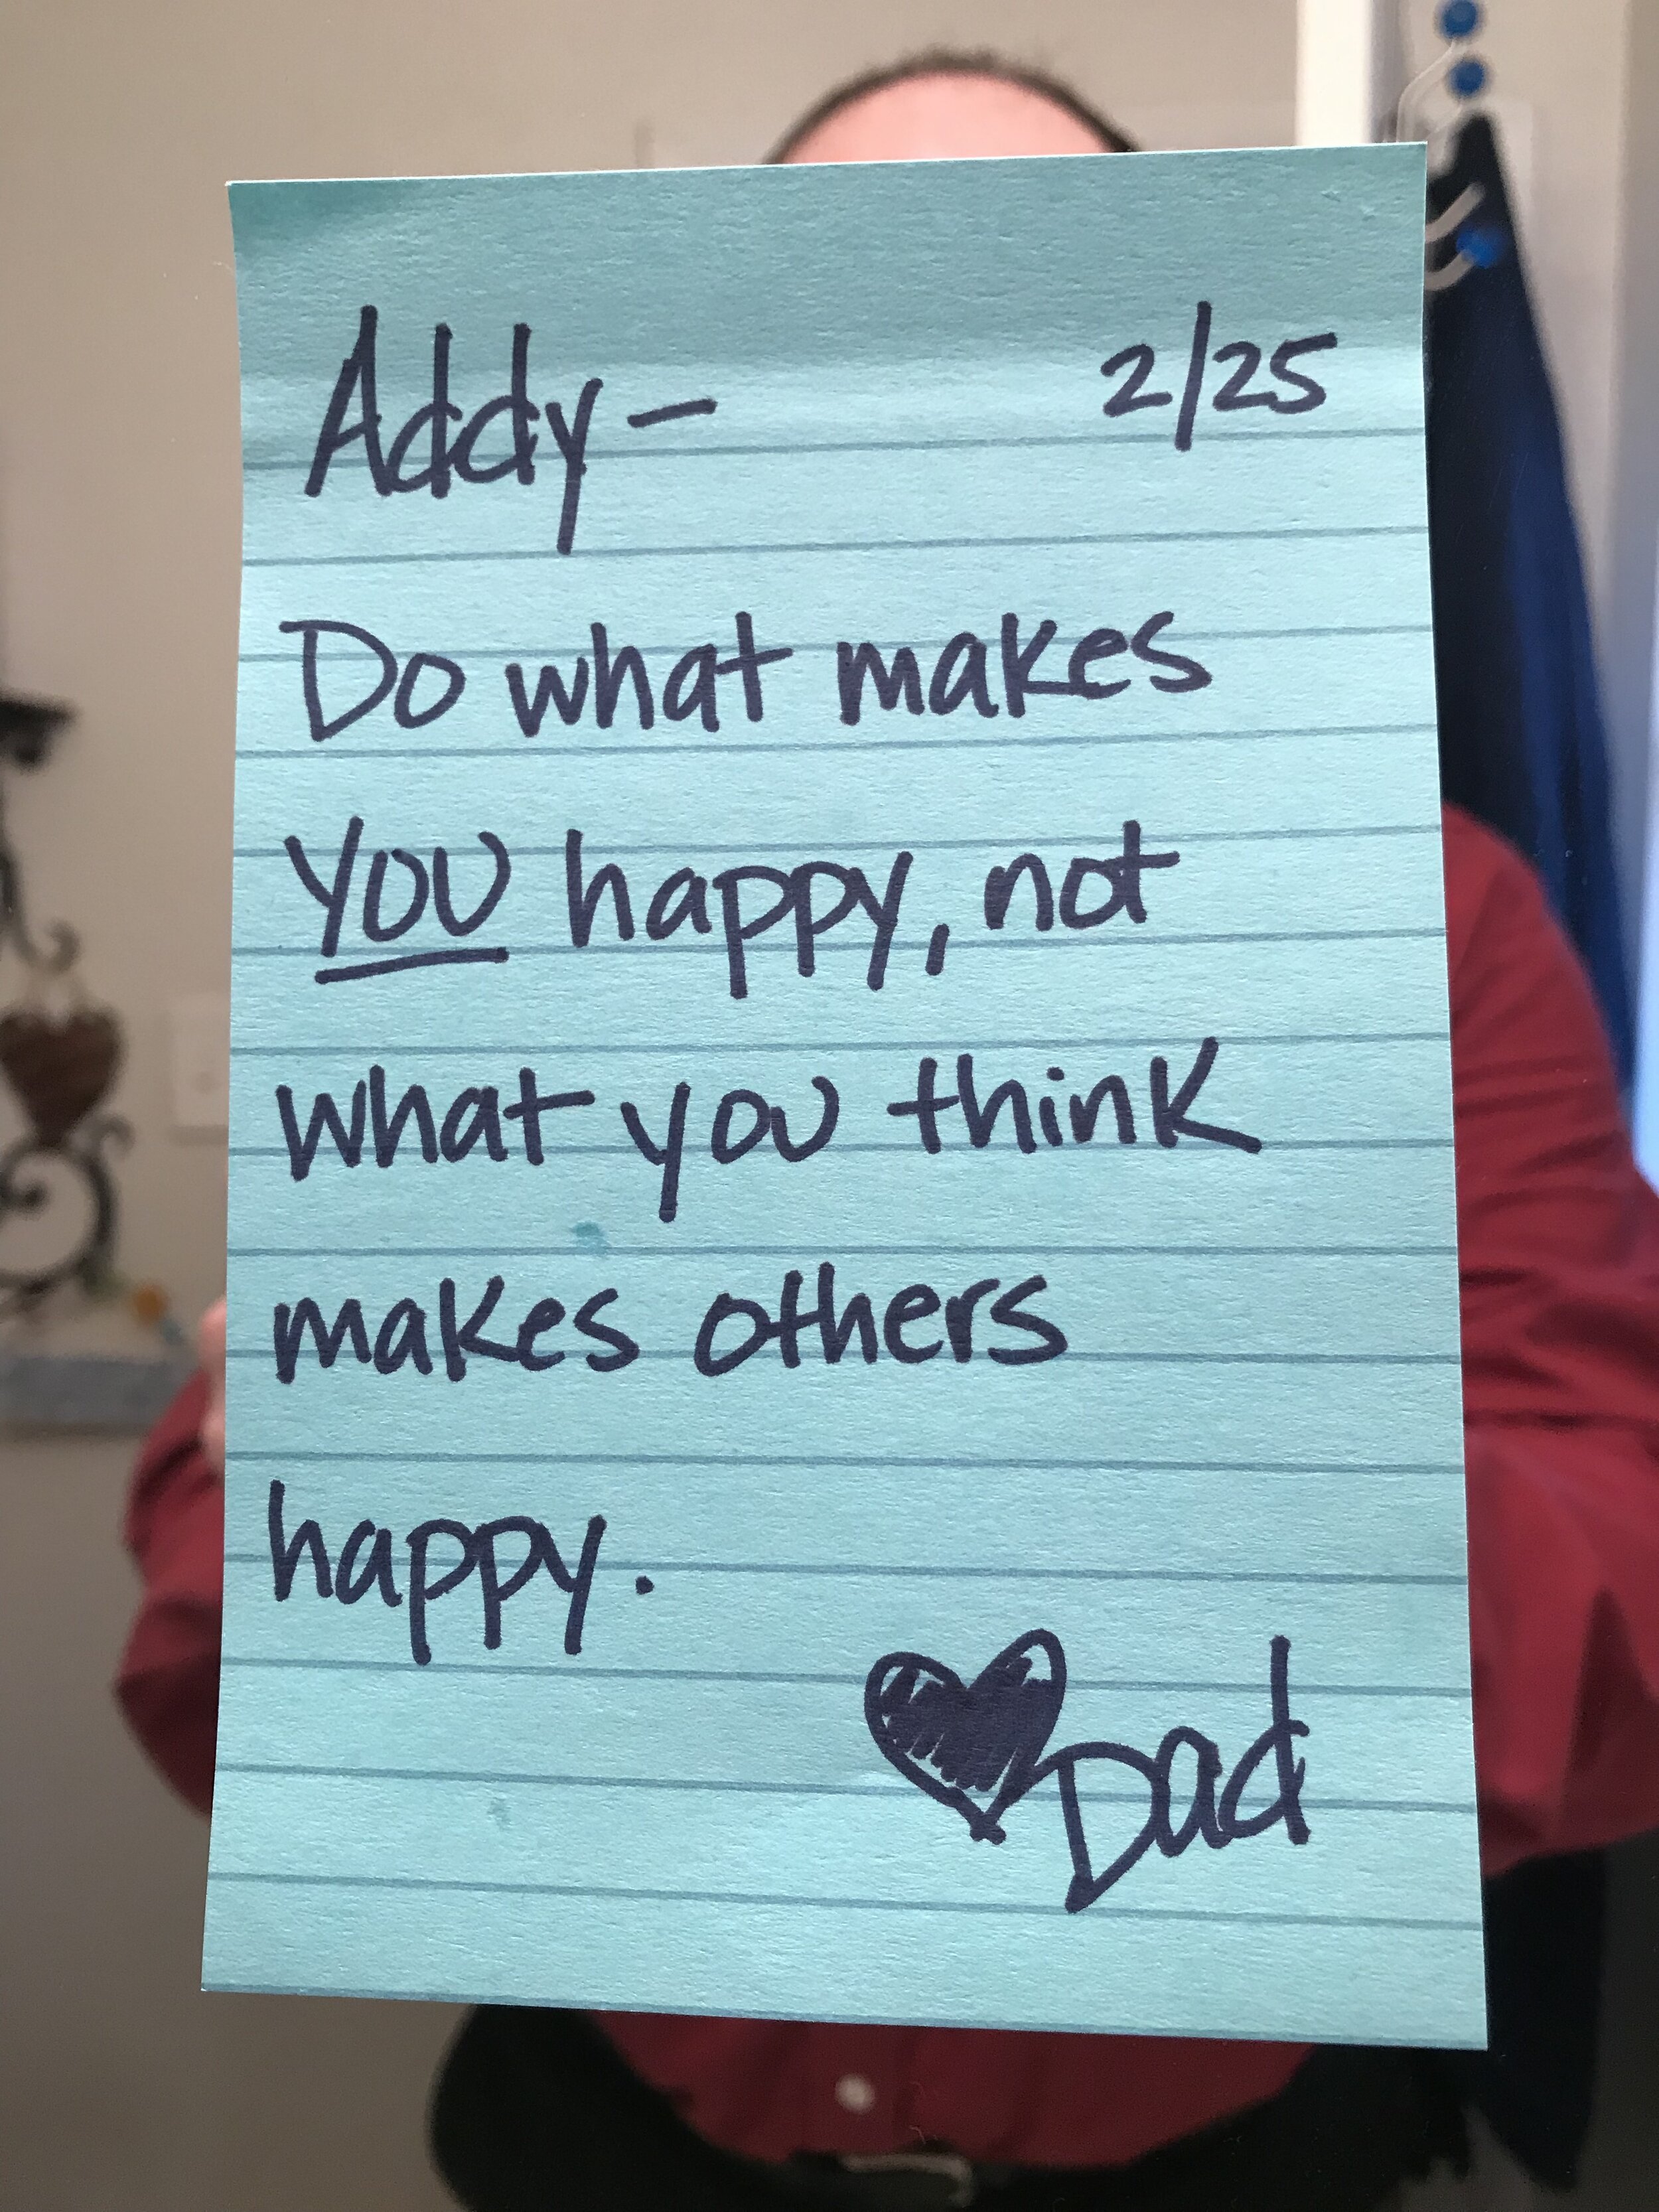 Addy- 2/25
Do what makes
YOU happy, not
what you think
makes others
happy.
Dad